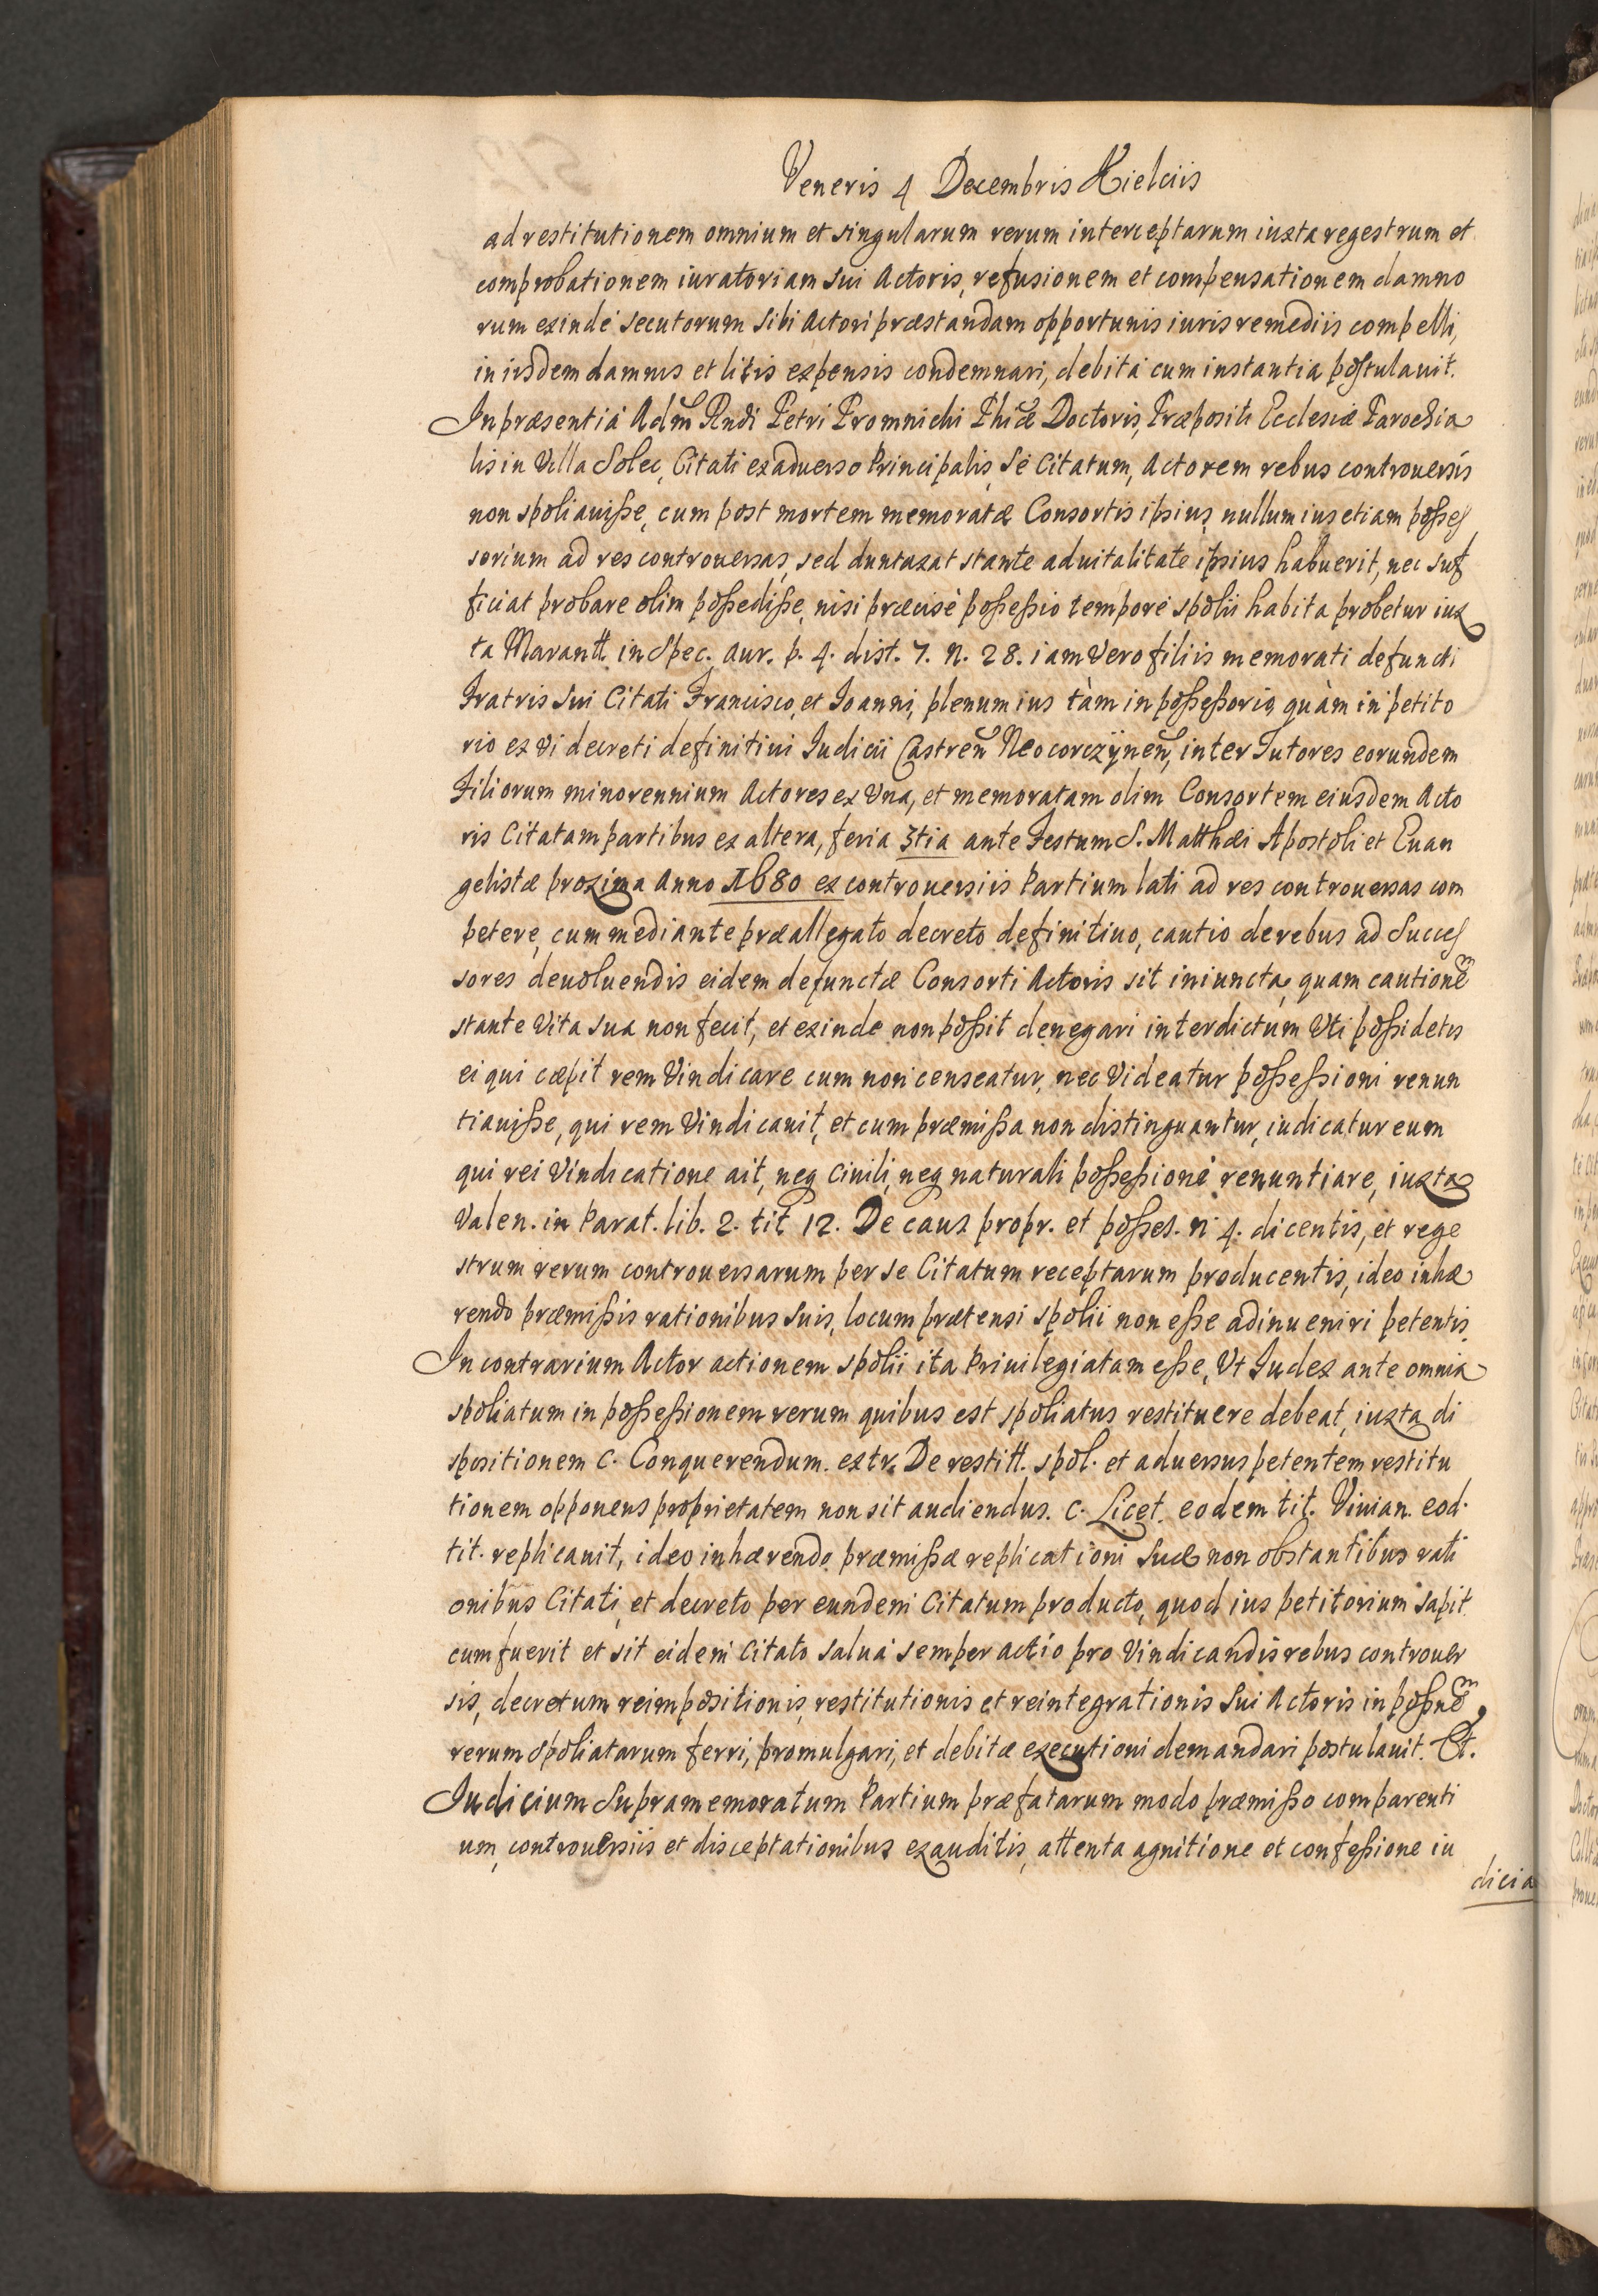 Veneris 4 Decembris Kielciis
ad restitutionem omnium et singularum rerum interceptarum iuxta regestrum et
comprobationem iuratoriam sui Actoris, refusionem et compensationem damno
rum exinde secutorum sibi Actori præstandam opportunis iuris remediis compelli,
in iisdem damnis et litis expensis condemnari, debita cum instantia postulauit.
In præsentia Adm Rndi Petri Promnichi Phiæ Doctoris, Præpositi Ecclesiæ Parochia
lis in Villa Solec, Citati ex aduerso Principalis, se Citatum, Actorem rebus controuersis
non spoliauisse, cum post mortem memoratæ Consortis ipsius nullum ius etiam posses
sorium ad res controuersas, sed duntaxat stante aduitalitate ipsius habuerit, nec suf
ficiat probare olim possedisse, nisi præcisè possessio tempore spolii habita probetur iux
ta Marantt. in Spec. Aur. p. 4. dist. 7. N. 28. iam vero filiis memorati defuncti
Fratris sui Citati Francisco, et Joanni, plenum ius tàm in possessorio, quàm in petito
rio ex vi decreti definitiui Judicii Castren Neocorczÿnen, inter Tutores eorundem
Filiorum minorennium Actores ex Vna, et memoratam olim Consortem eiusdem Acto
ris Citatam partibus ex altera, feria 3tia ante Festum S. Matthæi Apostoli et Euan
gelistæ proxima Anno 1680 ex controuersiis Partium lati ad res controuersas com
petere, cum mediante præallegato decreto definitiuo, cautio de rebus ad Succes
sores deuoluendis eidem defunctæ Consorti Actoris sit iniuncta, quam cautionem
stante vita sua non fecit, et exinde non possit denegari interdictum Vti possidetis
ei qui cæpit rem Vindicare cum non censeatur, nec Videatur possessioni renun
tiauisse, qui rem Vindicauit, et cum præmissa non distinguantur, iudicatur eum
qui rei Vindicatione ait, neq ciuili, neq naturali possessione renuntiare, iuxta
Valen. in Parat. lib. 2. tit 12. De caus propr. et posses. n 4. dicentis, et rege
strum rerum controuersarum per se Citatum receptarum producentis, ideo inhæ
rendo præmissis rationibus suis, locum prætensi spolii non esse adinueniri petentis.
In contrarium Actor actionem spolii ita Priuilegiatam esse, Vt Judex ante omnia
spoliatum in possessionem rerum quibus est spoliatus restituere debeat, iuxta di
spositionem c. Conquerendum. extr. De restitt. spol. et aduersus petentem restitu
tionem opponens proprietatem non sit audiendus. c. Licet. eodem tit. Viuian. eod.
tit. replicauit, ideo inhærendo præmissæ replicationi suæ non obstantibus rati
onibus Citati, et decreto per eundem Citatum producto, quod ius petitorium sapit
cum fuerit et sit eidem Citato salua semper actio pro Vindicandis rebus controuer
sis, decretum reimpositionis, restitutionis et reintegrationis sui Actoris in possnem
rerum spoliatarum ferri, promulgari, et debitæ executioni demandari postulauit. Et.
Judicium Supramemoratum Partium præfatarum modo præmisso comparenti
um, controuersiis et disceptationibus exauditis, attenta agnitione et confessione iu
dicia